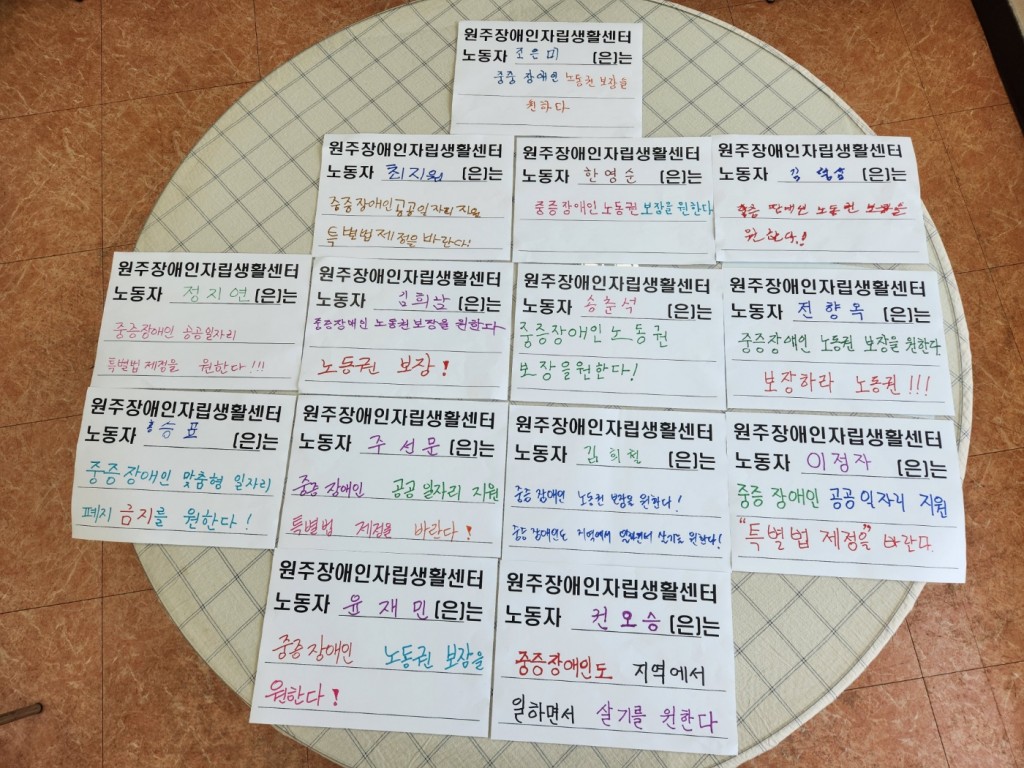 원주장애인자립생활센터
노동자 조은미 (은)는
중증 장애인 노동권 보장을
원하다
원주장애인자립생활센터
노동자 최지원 (은)는
중증장애인공공일자리 지원
특별법 제정을 바란다!
원주장애인자립생활센터
노동자 한영순 (은)는
중증장애인 노동권 보장을 원한다
원주장애인자립생활센터
노동자 (은)는
중증 노동권 보장을
원한다!
원주장애인자립생활센터
노동자 정지연 (은)는
중증장애인 공공일자리
특별법 제정을 원한다!!!
원주장애인자립생활센터
노동자 (은)는
중증장애인 노동권 보장을 원한다
노동권 보장!
원주장애인자립생활센터
노동자 송춘석 (은)는
중증장애인 노동권
보장을원한다!
원주장애인자립생활센터
노동자 전향옥 (은)는
중증장애인 노동권 보장을 원한다
보장하라 노동권!!!
원주장애인자립생활센터
노동자 승표 (은)는
중증장애인 맞춤형 일자리
폐지 금지를 원한다!
원주장애인자립생활센터
노동자 주선문 (은)는
중증 장애인 공공일자리 지원
특별법 제정을 바란다!
원주장애인자립생활센터
노동자 김희철 (은)는
중증 장애인 노동권 보장을 원한다!
중증 장애인도 지역에서 일하면서 살기를 원한다!
원주장애인자립생활센터
노동자 이정자 (은)는
중증 장애인 공공일자리 지원
"특별법 제정을" 바란다.
원주장애인자립생활센터
노동자 윤재민 (은)는
중증장애인 노동권 보장을
원한다!
원주장애인자립생활센터
노동자 권오승 (은)는
중증장애인도 지역에서
일하면서 살기를 원한다